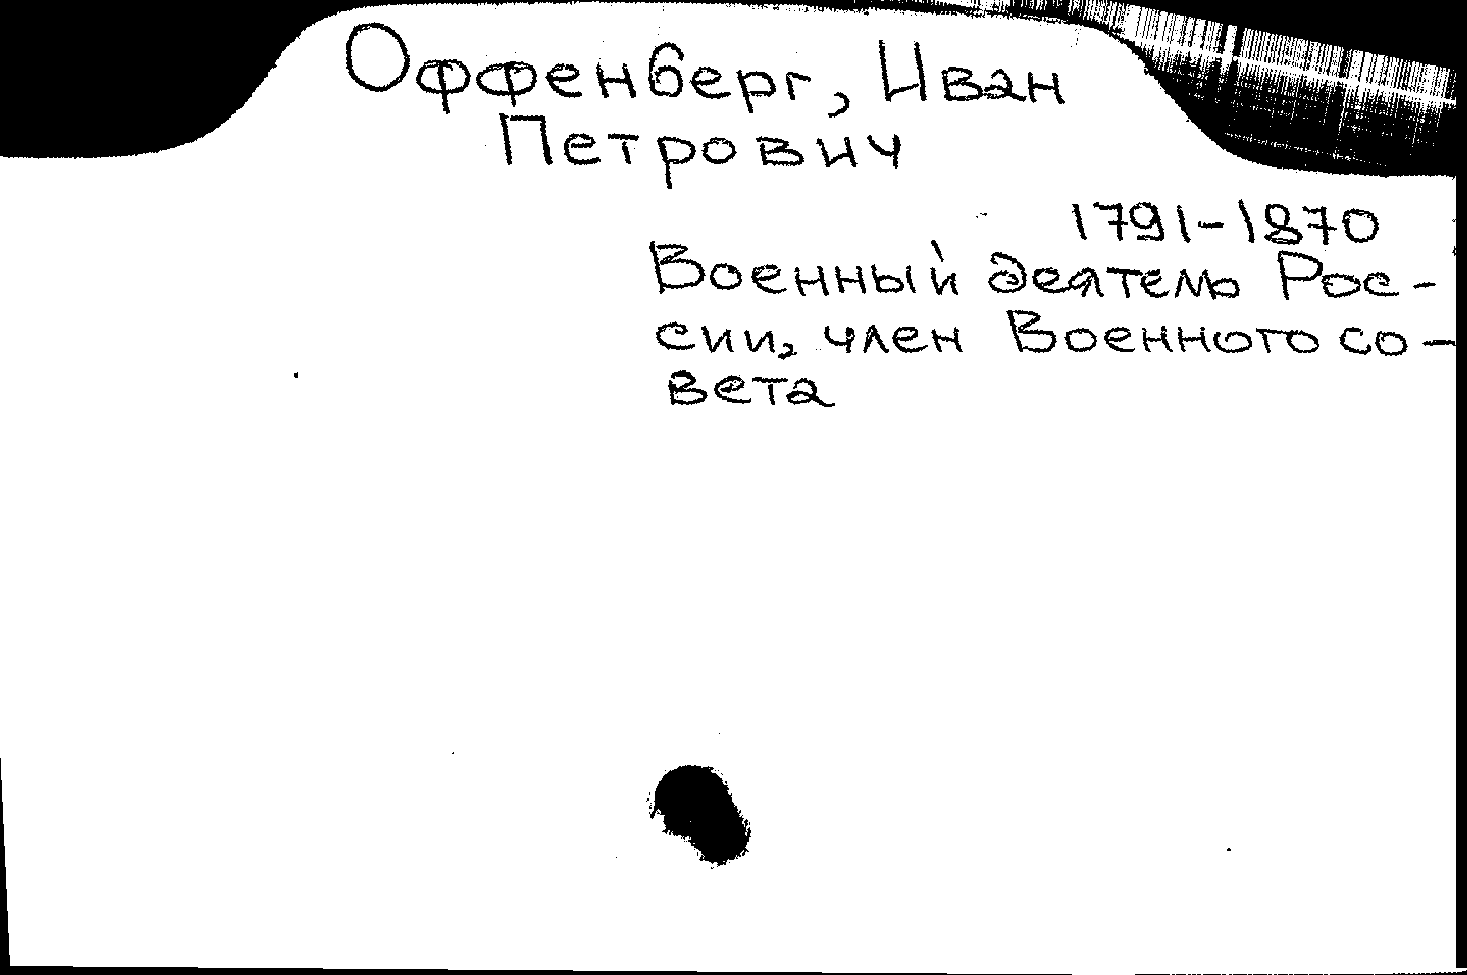 Оффенберг, Иван
Петрович
1791-1870
Военный деятель Рос-
сии, член Военного со-
вета